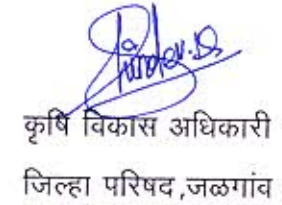 कृषि विकास अधिकारी
जिल्हा परिषद ,जळगांव